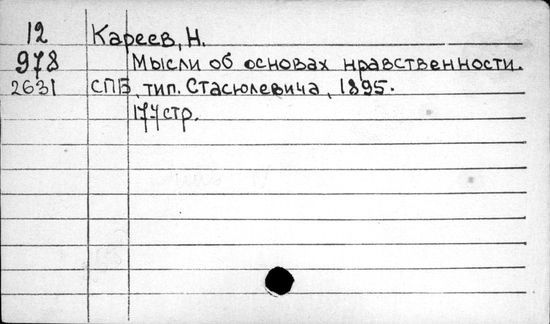 12 Кареев, Н.
978 Мысли об основах нравственности.
2631 СПБ, тип. Стасюлевича, 1895.
174 стр.